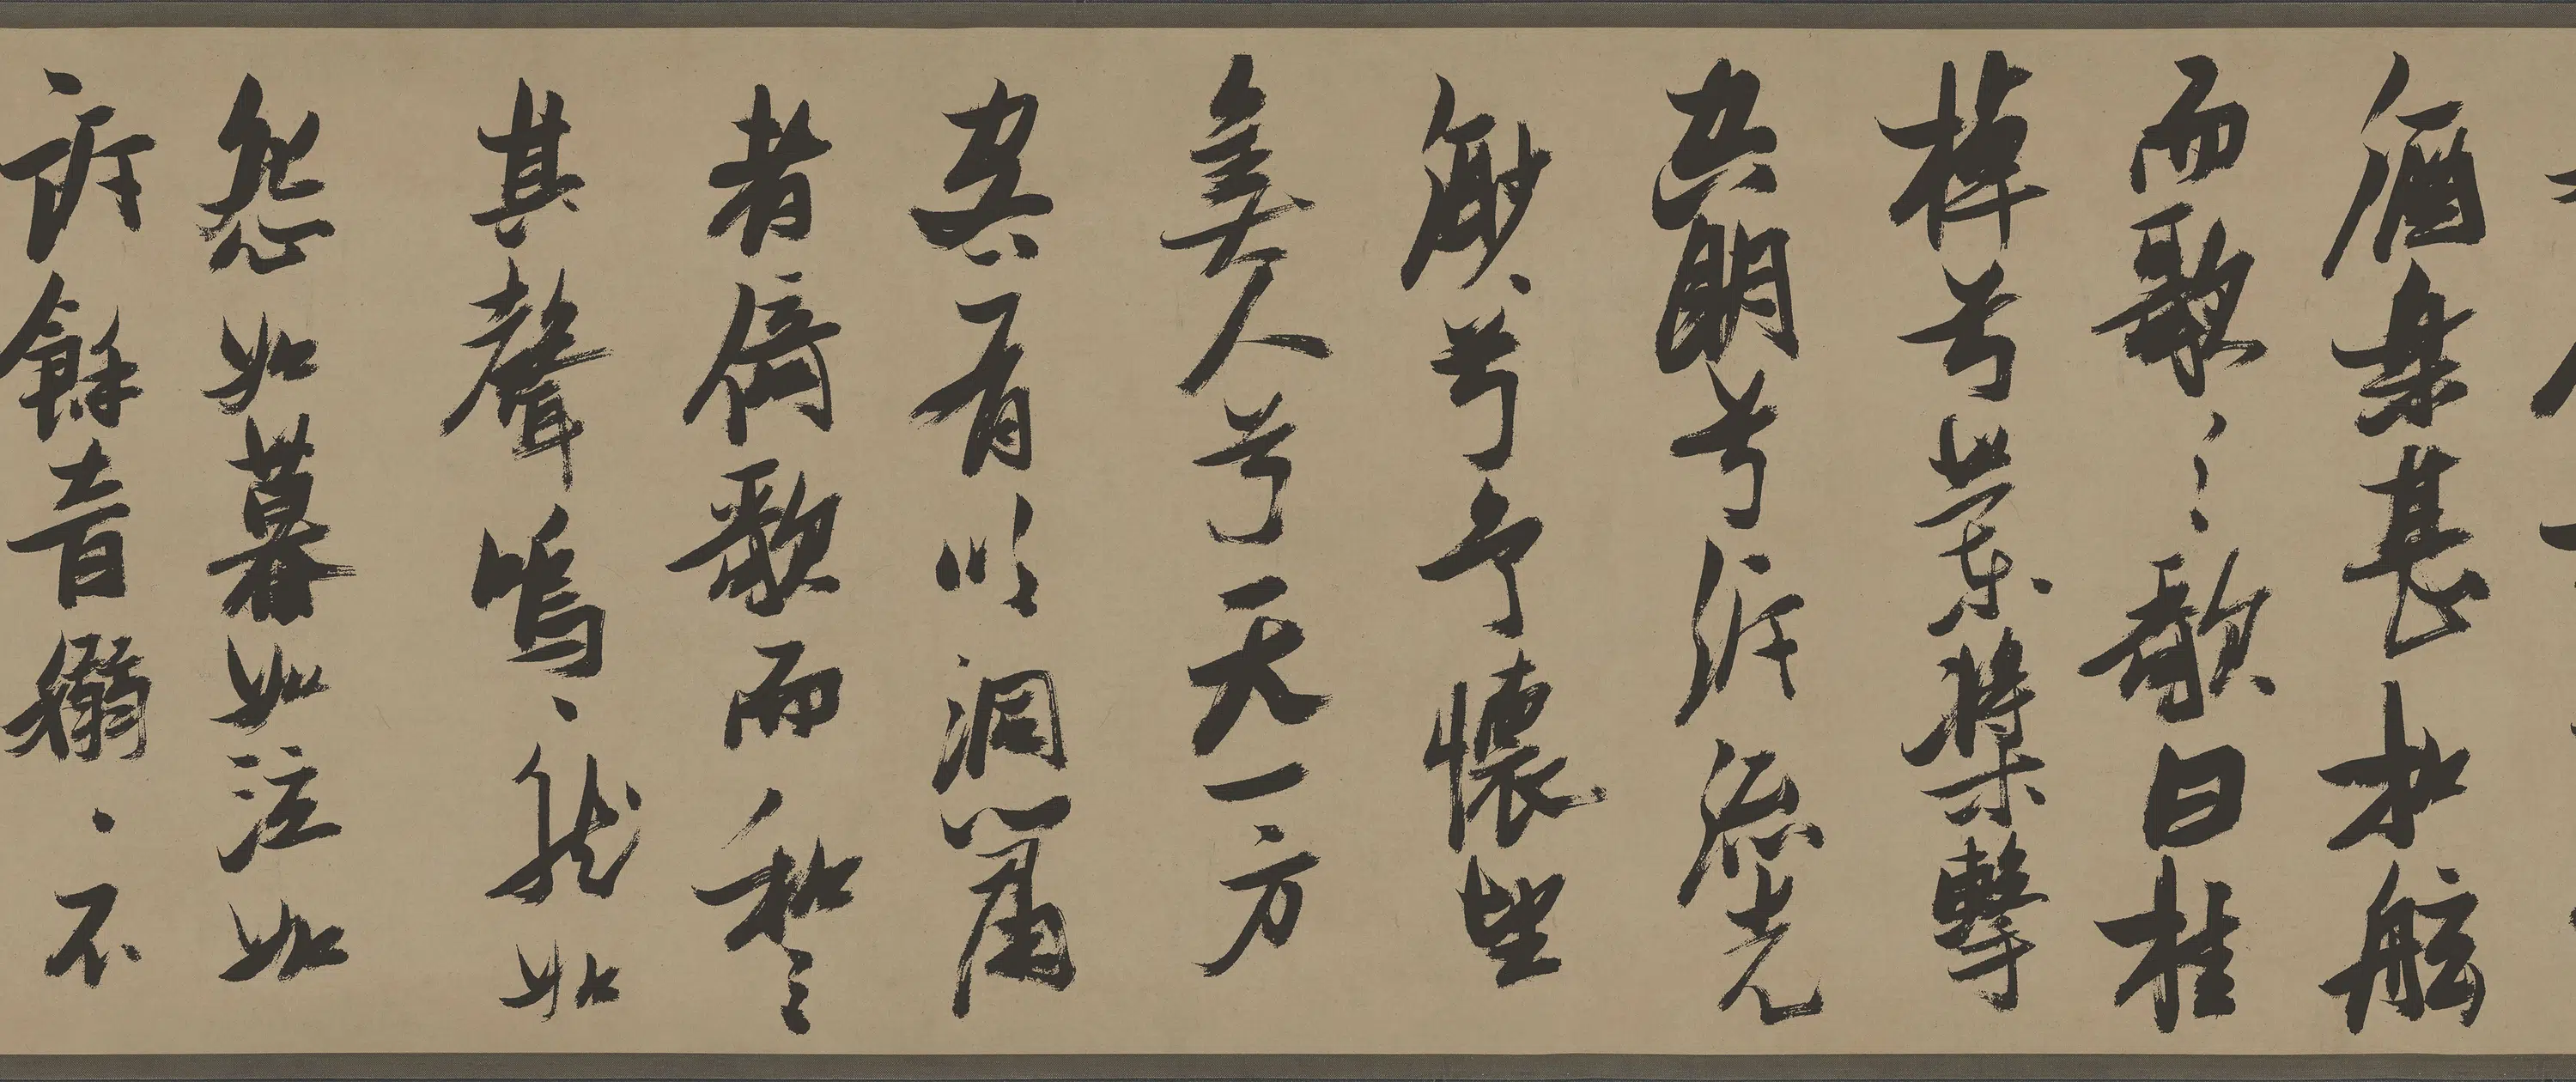 酒樂甚扣舷
而歌之歌曰桂
棹兮蘭槳擊
空明兮泝流光
渺〻兮予懷望
美人兮天一方
客有以洞簫
者倚歌而和之
其聲嗚〻然如
怨如慕如泣如
訴餘音嫋〻不